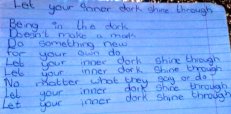 Let your inner dark shine through
Being in the dark
Doesn't make a mark
Do something new
For your own do
Let your inner dark shine through
Let your inner dark shine through
No matter what they say or do!
Let your inner dark shine through
Let your inner dark shine through